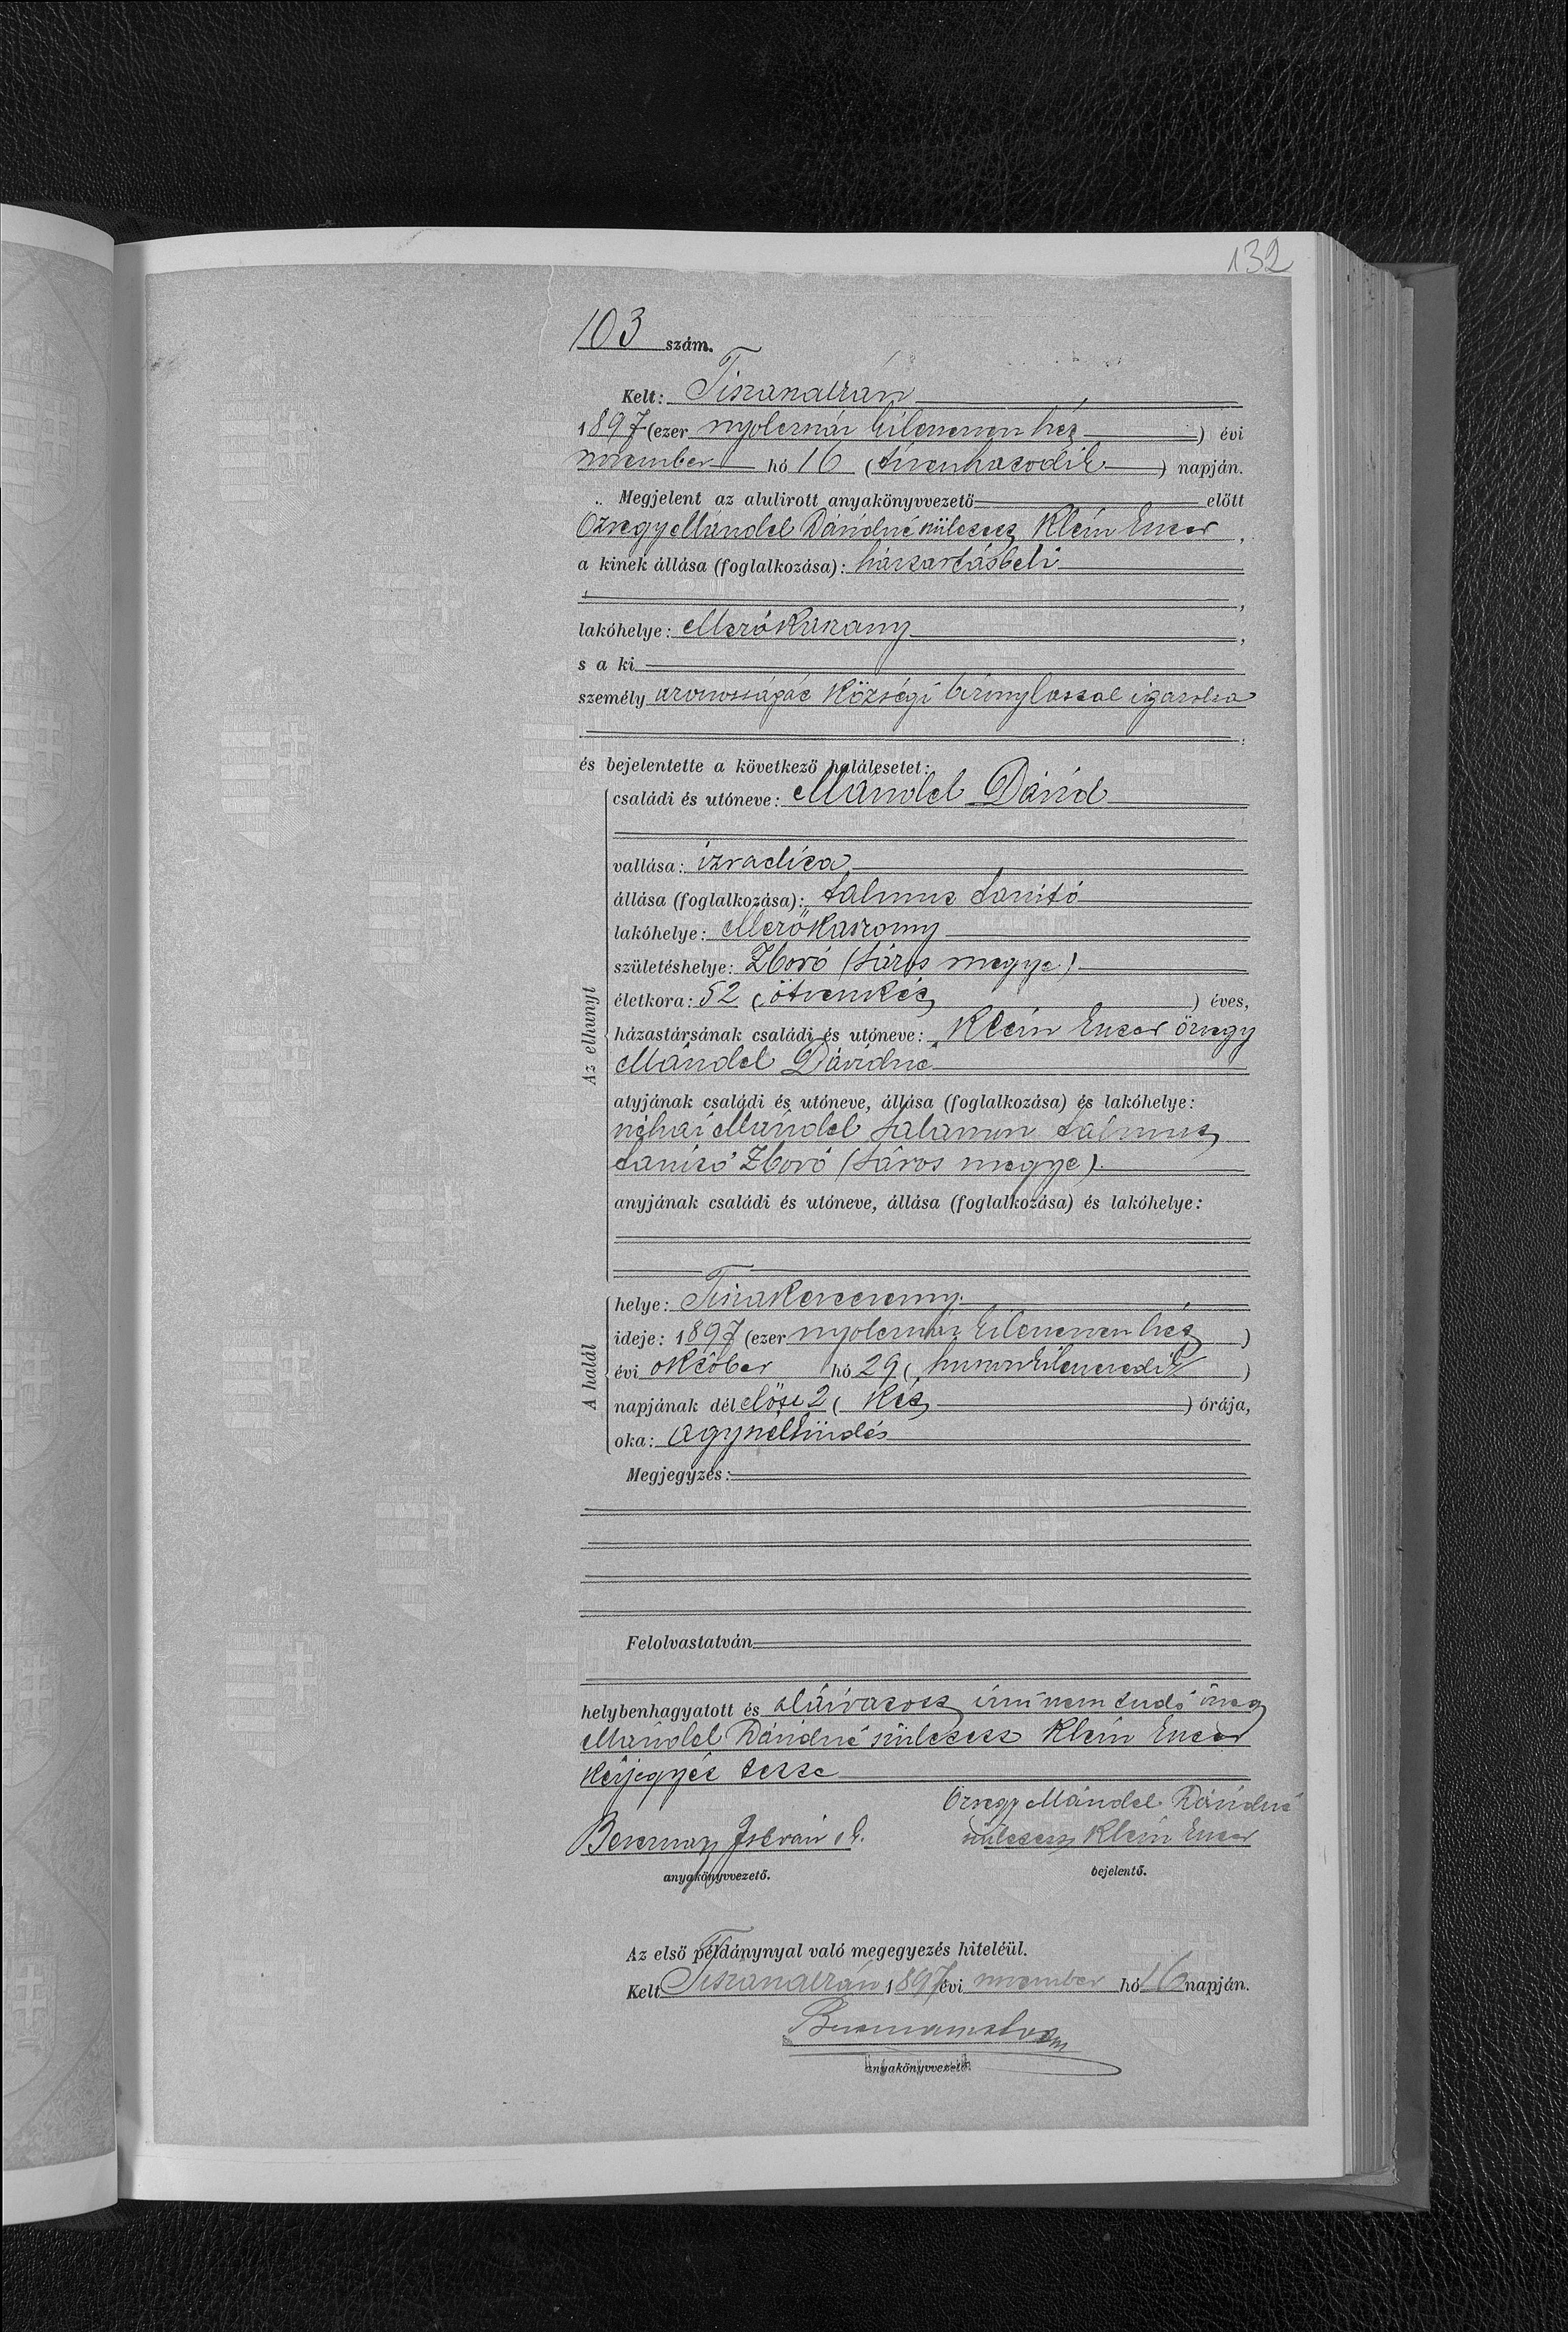 132
103 szám.
Kelt: Tiszanánán
1897 (ezer nyolczszáz kilenczven hét) évi
november hó 16 (tizenhatodik) napján.
Megjelent az alulirott anyakönyvvezető előtt
Özvegy Mándel Dávidné született Klein Eszter,
a kinek állása (foglalkozása): háztartásbeli
,
lakóhelye: Mezőkaszony,
s a ki
személy azonosságát községi bizonylattal igazolta
és bejelentette a következő halálesetet:
Az elhunyt
családi és utóneve: Mándel Dávid
vallása: izraelita
állása (foglalkozása): talmut tanító
lakóhelye: Mezőkaszony
születéshelye: Zboró (Sáros megye)
életkora: 52 (ötvenkét) éves,
házastársának családi és utóneve: Klein Eszter özvegy
Mándel Dávidné
atyjának családi és utóneve, állása (foglalkozása) és lakóhelye:
néhai Mándel Salamon talmut
tanító Zboró (Sáros megye)
anyjának családi és utóneve, állása (foglalkozása) és lakóhelye:
A halál
helye: Tiszakerecseny
ideje: 1897 (ezer nyolczszáz kilenczven hét)
évi október hó 29 (huszonkilenczedik)
napjának délelőtt 2 (két) órája,
oka: agyszélhűdés
Megjegyzés:
Felolvastatván
helybenhagyatott és aláiratott, írni nem tudó özvegy
Mándel Dávidné született Klein Eszter
kézjegyét tette
Özvegy Mándel Dávidné
István
született Klein Eszter
anyakönyvvezető.
bejelentő.
Az első példánynyal való megegyezés hiteléül.
Kelt 1897 évi november hó 16 napján.
anyakönyvvezető.